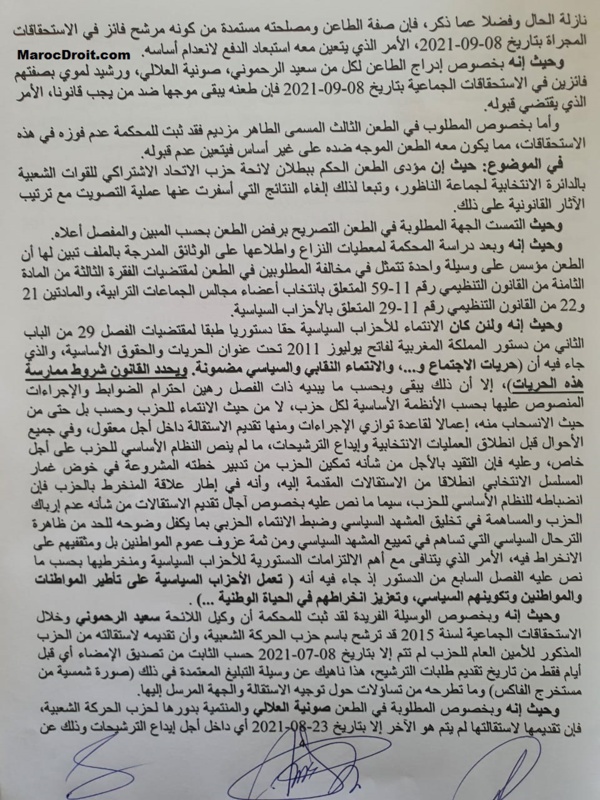 نازلة الحال وفضلا عما ذكر، فإن صفة الطاعن ومصلحته مستمدة من كونه مرشح فائز في الاستحقاقات
المجراة بتاريخ 08-09-2021، الأمر الذي يتعين معه استبعاد الدفع لانعدام أساسه.
MarocDroit.com
وحيث إنه بخصوص إدراج الطاعن لكل من سعيد الرحموني، صونية العلالي، ورشيد لموي بصفتهم
فائزين في الاستحقاقات الجماعية بتاريخ 08-09-2021 فإن طعنه يبقى موجها ضد من يجب قانونا، الأمر
الذي يقتضي قبوله.
وأما بخصوص المطلوب في الطعن الثالث المسمى الطاهر مزديم فقد ثبت للمحكمة عدم فوزه في هذه
الاستحقاقات، مما يكون معه الطعن الموجه ضده على غير أساس فيتعين عدم قبوله.
في الموضوع: حيث إن مؤدى الطعن الحكم ببطلان لائحة حزب الاتحاد الاشتراكي للقوات الشعبية
بالدائرة الانتخابية لجماعة الناظور، وتبعا لذلك إلغاء النتائج التي أسفرت عنها عملية التصويت مع ترتيب
الآثار القانونية على ذلك.
وحيث التمست الجهة المطلوبة في الطعن التصريح برفض الطعن بحسب المبين والمفصل أعلاه.
وحيث إنه وبعد دراسة المحكمة لمعطيات النزاع واطلاعها على الوثائق المدرجة بالملف تبين لها أن
الطعن مؤسس على وسيلة واحدة تتمثل في مخالفة المطلوبين في الطعن لمقتضيات الفقرة الثالثة من المادة
الثامنة من القانون التنظيمي رقم 11-59 المتعلق بانتخاب أعضاء مجالس الجماعات الترابية، والمادتين 21
و22 من القانون التنظيمي رقم 11-29 المتعلق بالأحزاب السياسية.
وحيث إنه ولئن كان الانتماء للأحزاب السياسية حقا دستوريا طبقا لمقتضيات الفصل 29 من الباب
الثاني من دستور المملكة المغربية لفاتح يوليوز 2011 تحت عنوان الحريات والحقوق الأساسية، والذي
جاء فيه أن (حريات الاجتماع و...، والانتماء النقابي والسياسي مضمونة. ويحدد القانون شروط ممارسة
هذه الحريات)، إلا أن ذلك يبقى وبحسب ما يبديه ذات الفصل رهين احترام الضوابط والإجراءات
المنصوص عليها بحسب الأنظمة الأساسية لكل حزب، لا من حيث الانتماء للحزب وحسب بل حتى من
حيث الانسحاب منه، إعمالا لقاعدة توازي الإجراءات ومنها تقديم الاستقالة داخل أجل معقول، وفي جميع
الأحوال قبل انطلاق العمليات الانتخابية وإيداع الترشيحات، ما لم ينص النظام الأساسي للحزب على أجل
خاص، وعليه فإن التقيد بالأجل من شأنه تمكين الحزب من تدبير خطته المشروعة في خوض غمار
المسلسل الانتخابي انطلاقا من الاستقالات المقدمة إليه، وأنه في إطار علاقة المنخرط بالحزب فإن
انضباطه للنظام الأساسي للحزب، سيما ما نص عليه بخصوص آجال تقديم الاستقالات من شأنه عدم إرباك
الحزب والمساهمة في تخليق المشهد السياسي وضبط الانتماء الحزبي بما يكفل وضوحه للحد من ظاهرة
الترحال السياسي التي تساهم في تمييع المشهد السياسي ومن ثمة عزوف عموم المواطنين بل ومثقفيهم على
الانخراط فيه، الأمر الذي يتنافى مع أهم الالتزامات الدستورية للأحزاب السياسية ومنخرطيها بحسب ما
نص عليه الفصل السابع من الدستور إذ جاء فيه أنه ( تعمل الأحزاب السياسية على تأطير المواطنات
والمواطنين وتكوينهم السياسي، وتعزيز انخراطهم في الحياة الوطنية ...).
وحيث إنه وبخصوص الوسيلة الفريدة لقد ثبت للمحكمة أن وكيل اللائحة سعيد الرحموني وخلال
الاستحقاقات الجماعية لسنة 2015 قد ترشح باسم حزب الحركة الشعبية، وأن تقديمه لاستقالته من الحزب
المذكور للأمين العام للحزب لم تتم إلا بتاريخ 08-07-2021 حسب الثابت من تصديق الإمضاء أي قبل
أيام فقط من تاريخ تقديم طلبات الترشيح، هذا ناهيك عن وسيلة التبليغ المعتمدة في ذلك (صورة شمسية من
مستخرج الفاكس) وما تطرحه من تساؤلات حول توجيه الاستقالة والجهة المرسل إليها.
وحيث إنه وبخصوص المطلوبة في الطعن صونية العلالي والمنتمية بدورها لحزب الحركة الشعبية،
فإن تقديمها لاستقالتها لم يتم هو الآخر إلا بتاريخ 23-08-2021 أي داخل أجل إيداع الترشيحات وذلك عن